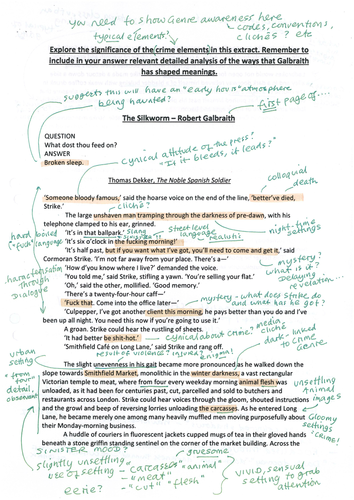 you need to show Genre awareness here
typical elements?
codes, conventions,
clichés? etc
Explore the significance of the crime elements in this extract. Remember to
include in your answer relevant detailed analysis of the ways that Galbraith
has shaped meanings.
suggests this will have an "early hours" atmosphere
being haunted?
first page of...
The Silkworm – Robert Galbraith
QUESTION
What dost thou feed on?
ANSWER
Broken sleep.
cynical attitude of the press?
"If it bleeds, it leads?"
Thomas Dekker, The Noble Spanish Soldier
colloquial
death
'Someone bloody famous,' said the hoarse voice on the end of the line, 'better've died,
Strike.'
cliché?
The large unshaven man tramping through the darkness of pre-dawn, with his
telephone clamped to his ear, grinned.
'It's in that ballpark.'
slang
street level
language
realistic
night-time
settings
'It's six o'clock in the fucking morning!'
'It's half past, but if you want what I've got, you'll need to come and get it,' said
Cormoran Strike. 'I'm not far away from your place. There's a—'
'How'd you know where I live?' demanded the voice.
'You told me,' said Strike, stifling a yawn. 'You're selling your flat.'
'Oh,' said the other, mollified. 'Good memory.'
'There's a twenty-four-hour caff—'
'Fuck that. Come into the office later—'
'Culpepper, I've got another client this morning, he pays better than you do and I've
been up all night. You need this now if you're going to use it.'
A groan. Strike could hear the rustling of sheets.
'It had better be shit-hot.'
'Smithfield Café on Long Lane,' said Strike and rang off.
hard boiled
("fuck") language
characterisation
through
dialogue
mystery?
what is it?
Delaying
revelation...
mystery - what does Strike do
and what has he got?
cynical about crime?
media,
cliché
dark - linked
to crime
Genre
result of violence? injury?
enigma!
urban
setting
The slight unevenness in his gait became more pronounced as he walked down the
slope towards Smithfield Market, monolithic in the winter darkness, a vast rectangular
Victorian temple to meat, where from four every weekday morning animal flesh was
unloaded, as it had been for centuries past, cut, parcelled and sold to butchers and
restaurants across London. Strike could hear voices through the gloom, shouted instructions
and the growl and beep of reversing lorries unloading the carcasses. As he entered Long
Lane, he became merely one among many heavily muffled men moving purposefully about
their Monday-morning business.
A huddle of couriers in fluorescent jackets cupped mugs of tea in their gloved hands
beneath a stone griffin standing sentinel on the corner of the market building. Across the
unsettling
animal
images
Gloomy
settings
'crime'
SINISTER MOOD?
slightly unsettling
use of setting -
eerie?
gruesome
"carcasses" "animal"
- "meat"
- "cut" "flesh"
VIVID, sensual
setting to grab
attention